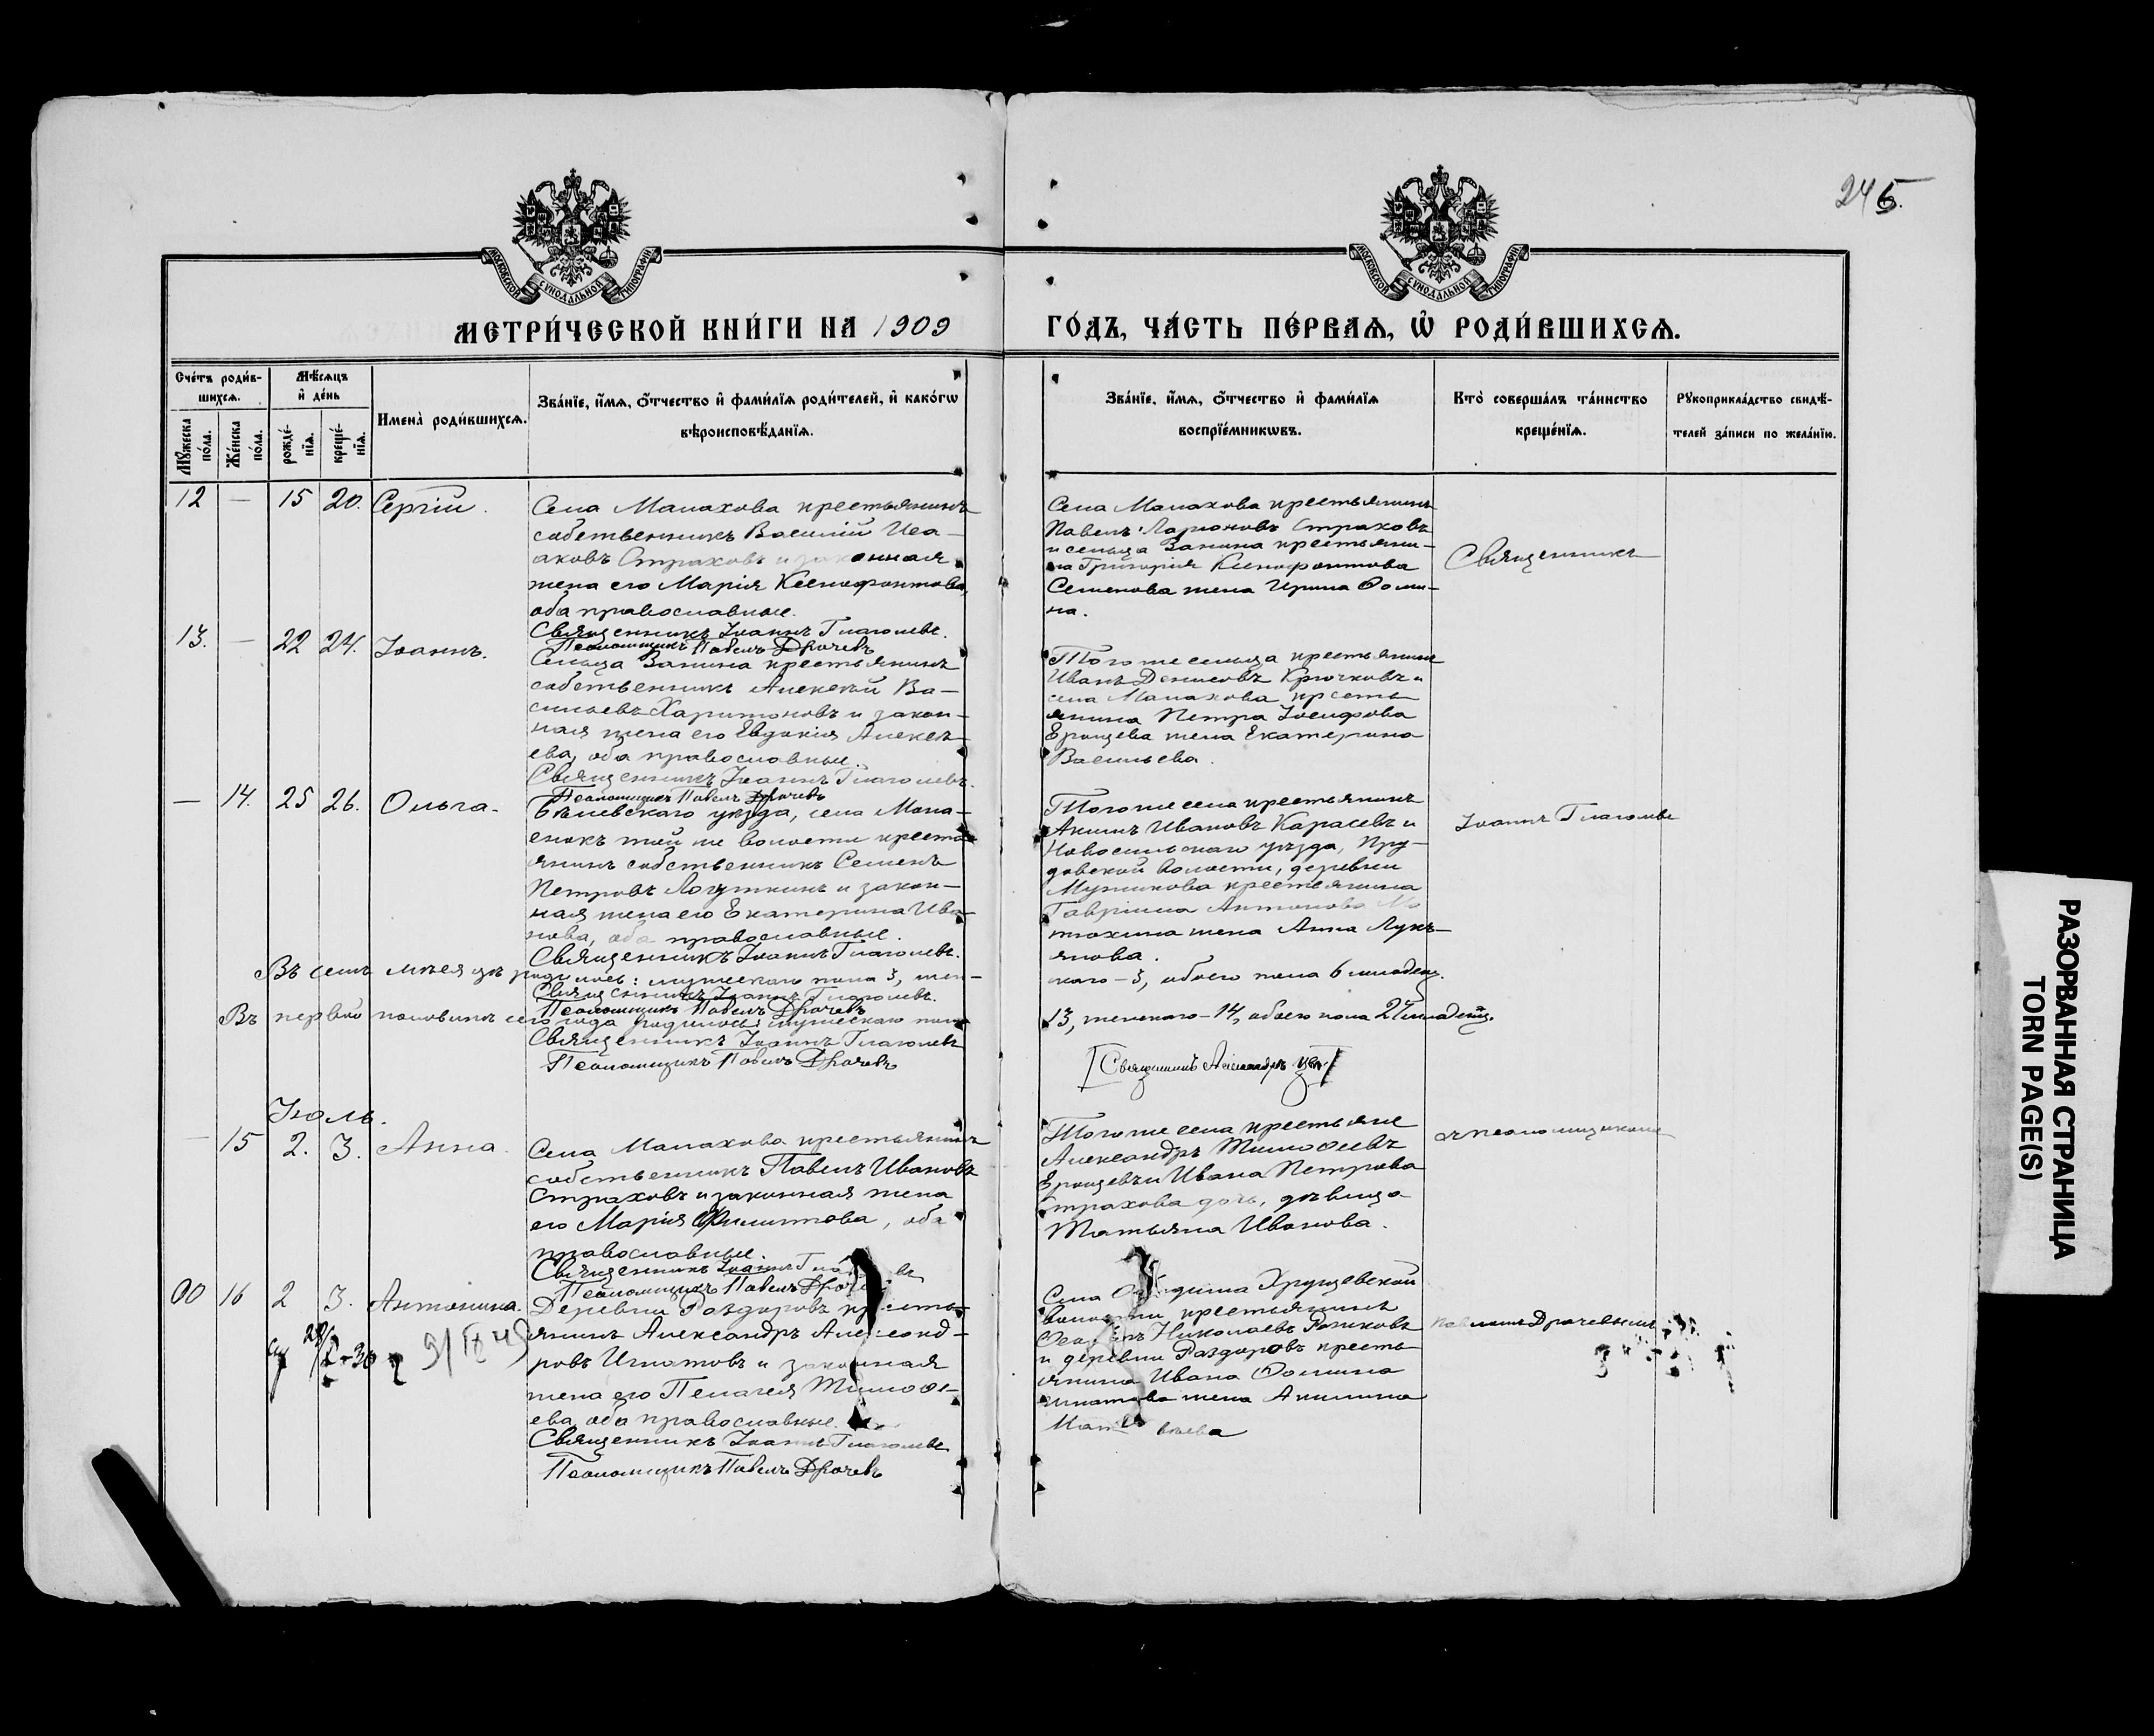 245.
МОСКОВСКОЙ СѴНОДАЛЬНОЙ ТИПОГРАФІИ
МОСКОВСКОЙ СѴНОДАЛЬНОЙ ТИПОГРАФІИ
МЕТРИ́ЧЕСКОЙ КНИ́ГИ НА 1909 ГО́ДЪ, ЧА́СТЬ ПЕ́РВАѦ, Ѡ҆ РОДИ́ВШИХСѦ.
Сче́тъ роди́в-
шихсѧ.
Мѣ́сѧцъ
и҆ де́нь
Мꙋ́жеска
по́ла.
Же́нска
по́ла.
рожде́-
нїѧ.
креще́-
нїѧ.
Имена̀ роди́вшихсѧ.
Зва́нїе, и҆́мѧ, ѻ҆́тчество и҆ фами́лїѧ роди́телей, и҆ како́гѡ
вѣроисповѣ́данїѧ.
Зва́нїе, и҆́мѧ, ѻ҆́тчество и҆ фами́лїѧ
воспрїе́мникѡвъ.
Кто̀ соверша́лъ та́инство
креще́нїѧ.
Рꙋкоприкла́дство свидѣ́-
телей за́писи по жела́нїю.
12 — 15 20. Сергій.
Села Малахова крестьянинъ
собственникъ Василій Иса-
аковъ Страховъ и законная
жена его Марія Ксенофонтова,
оба православные.
Священникъ Іоаннъ Глаголевъ.
Псаломщикъ Павелъ Драчевъ
Села Малахова крестьянинъ
Павелъ Ларионовъ Страховъ
и сельца Занина крестьяни-
на Григорія Ксенофонтова
Семенова жена Ирина Ѳоми-
на.
Священникъ
13. — 22 24. Іоаннъ.
Сельца Занина крестьянинъ
собственникъ Алексѣй Ва-
сильевъ Харитоновъ и закон-
ная жена его Евдокія Алексѣ-
ева, оба православные.
Священникъ Іоаннъ Глаголевъ.
Псаломщикъ Павелъ Драчевъ
Того же сельца крестьянинъ
Иванъ Денисовъ Крючковъ и
села Малахова кресть
янина Петра Іосифова
Ершова жена Екатерина
Васильева.
— 14. 25 26. Ольга.
Бѣлевскаго уѣзда, села Мона-
енокъ той же волости кресть
янинъ собственникъ Семенъ
Петровъ Логуткинъ и закон-
ная жена его Екатерина Ива-
нова, оба православные.
Священникъ Іоаннъ Глаголевъ.
Того же села крестьянинъ
Акимъ Ивановъ Карасевъ и
Новосильскаго уѣзда, Пру-
довской волости, деревни
Мужикова крестьянина
Гавріила Антонова
жена Анна Лукь-
янова.
Іоаннъ Глаголевъ
Въ семъ мѣсяцѣ родилось: мужескаго пола 3, жен-
скаго - 3, обоего пола 6 младенц.
Священникъ Іоаннъ Глаголевъ.
Псаломщикъ Павелъ Драчевъ
Въ первой половинѣ сего года родилось: мужескаго пола
13, женскаго - 14, обоего пола 27 младенц.
Священникъ Іоаннъ Глаголевъ
Псаломщикъ Павелъ Драчевъ
Священникъ Александръ
Іюль.
— 15 2. 3. Анна.
Села Малахова крестьянинъ
собственникъ Павелъ Ивановъ
Страховъ и законная жена
его Марія Филиппова, оба
православные.
Священникъ Іоаннъ
Псаломщикъ Павелъ
Того же села крестьяне
Александръ Тимоѳеевъ
и Ивана Петрова
Страхова дочь, дѣвица
Татьяна Иванова.
съ псаломщикомъ
16 2 3. Антонина.
Деревни Раздоровъ кресть-
янинъ Александръ Александ-
ровъ Игнатовъ и законная
жена его Пелагея Тимоѳе-
ева, оба православные.
Священникъ Іоаннъ Глаголевъ
Псаломщикъ Павелъ Драчевъ
Села Хрущевской
волости крестьянинъ
Николаевъ Рожковъ
и деревни Раздоровъ кресть-
янина Ивана Ѳомина
Игнатова жена Акилина
Матвѣева
Павломъ Драчевымъ
РАЗОРВАННАЯ СТРАНИЦА
TORN PAGE(S)